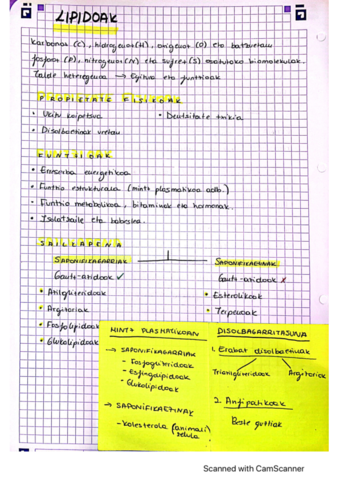 LIPIDOAK
Karbonoz (C), hidrogenoz (H), oxigenoz (O) eta batzuetan
fosforoz (P), nitrogenoz (N) eta sufrez (S) osatutako biomolekulak.
Talde heterogeneoa → Egitura eta funtzioak
PROPIETATE FISIKOAK
• Ukitu koipetsua
• Dentsitate txikia
• Disolbaezinak uretan
FUNTZIOAK
• Erreserba energetikoa
• Funtzio estrukturala (mintz plasmatikoa adb.)
• Funtzio metabolikoa, bitaminak eta hormonak.
• Isolatzaile eta babeslea.
SAILKAPENA
SAPONIFIKAGARRIAK
SAPONIFIKAEZINAK
Gantz-azidoak ✓
Gantz-azidoak ✗
• Azilglizeridoak
• Esterolikoak
• Argizariak
• Terpenoak
• Fosfolipidoak
• Glukolipidoak
MINTZ PLASMATIKOAN
→ SAPONIFIKAGARRIAK
- Fosfoglizeridoak
- Esfingolipidoak
- Glukolipidoak
→ SAPONIFIKAEZINAK
- Kolesterola (animali zelula)
DISOLBAGARRITASUNA
1. Erabat disolbaezinak
Triazilglizeridoak
Argizariak
2. Anfipatikoak
Beste guztiak
Scanned with CamScanner